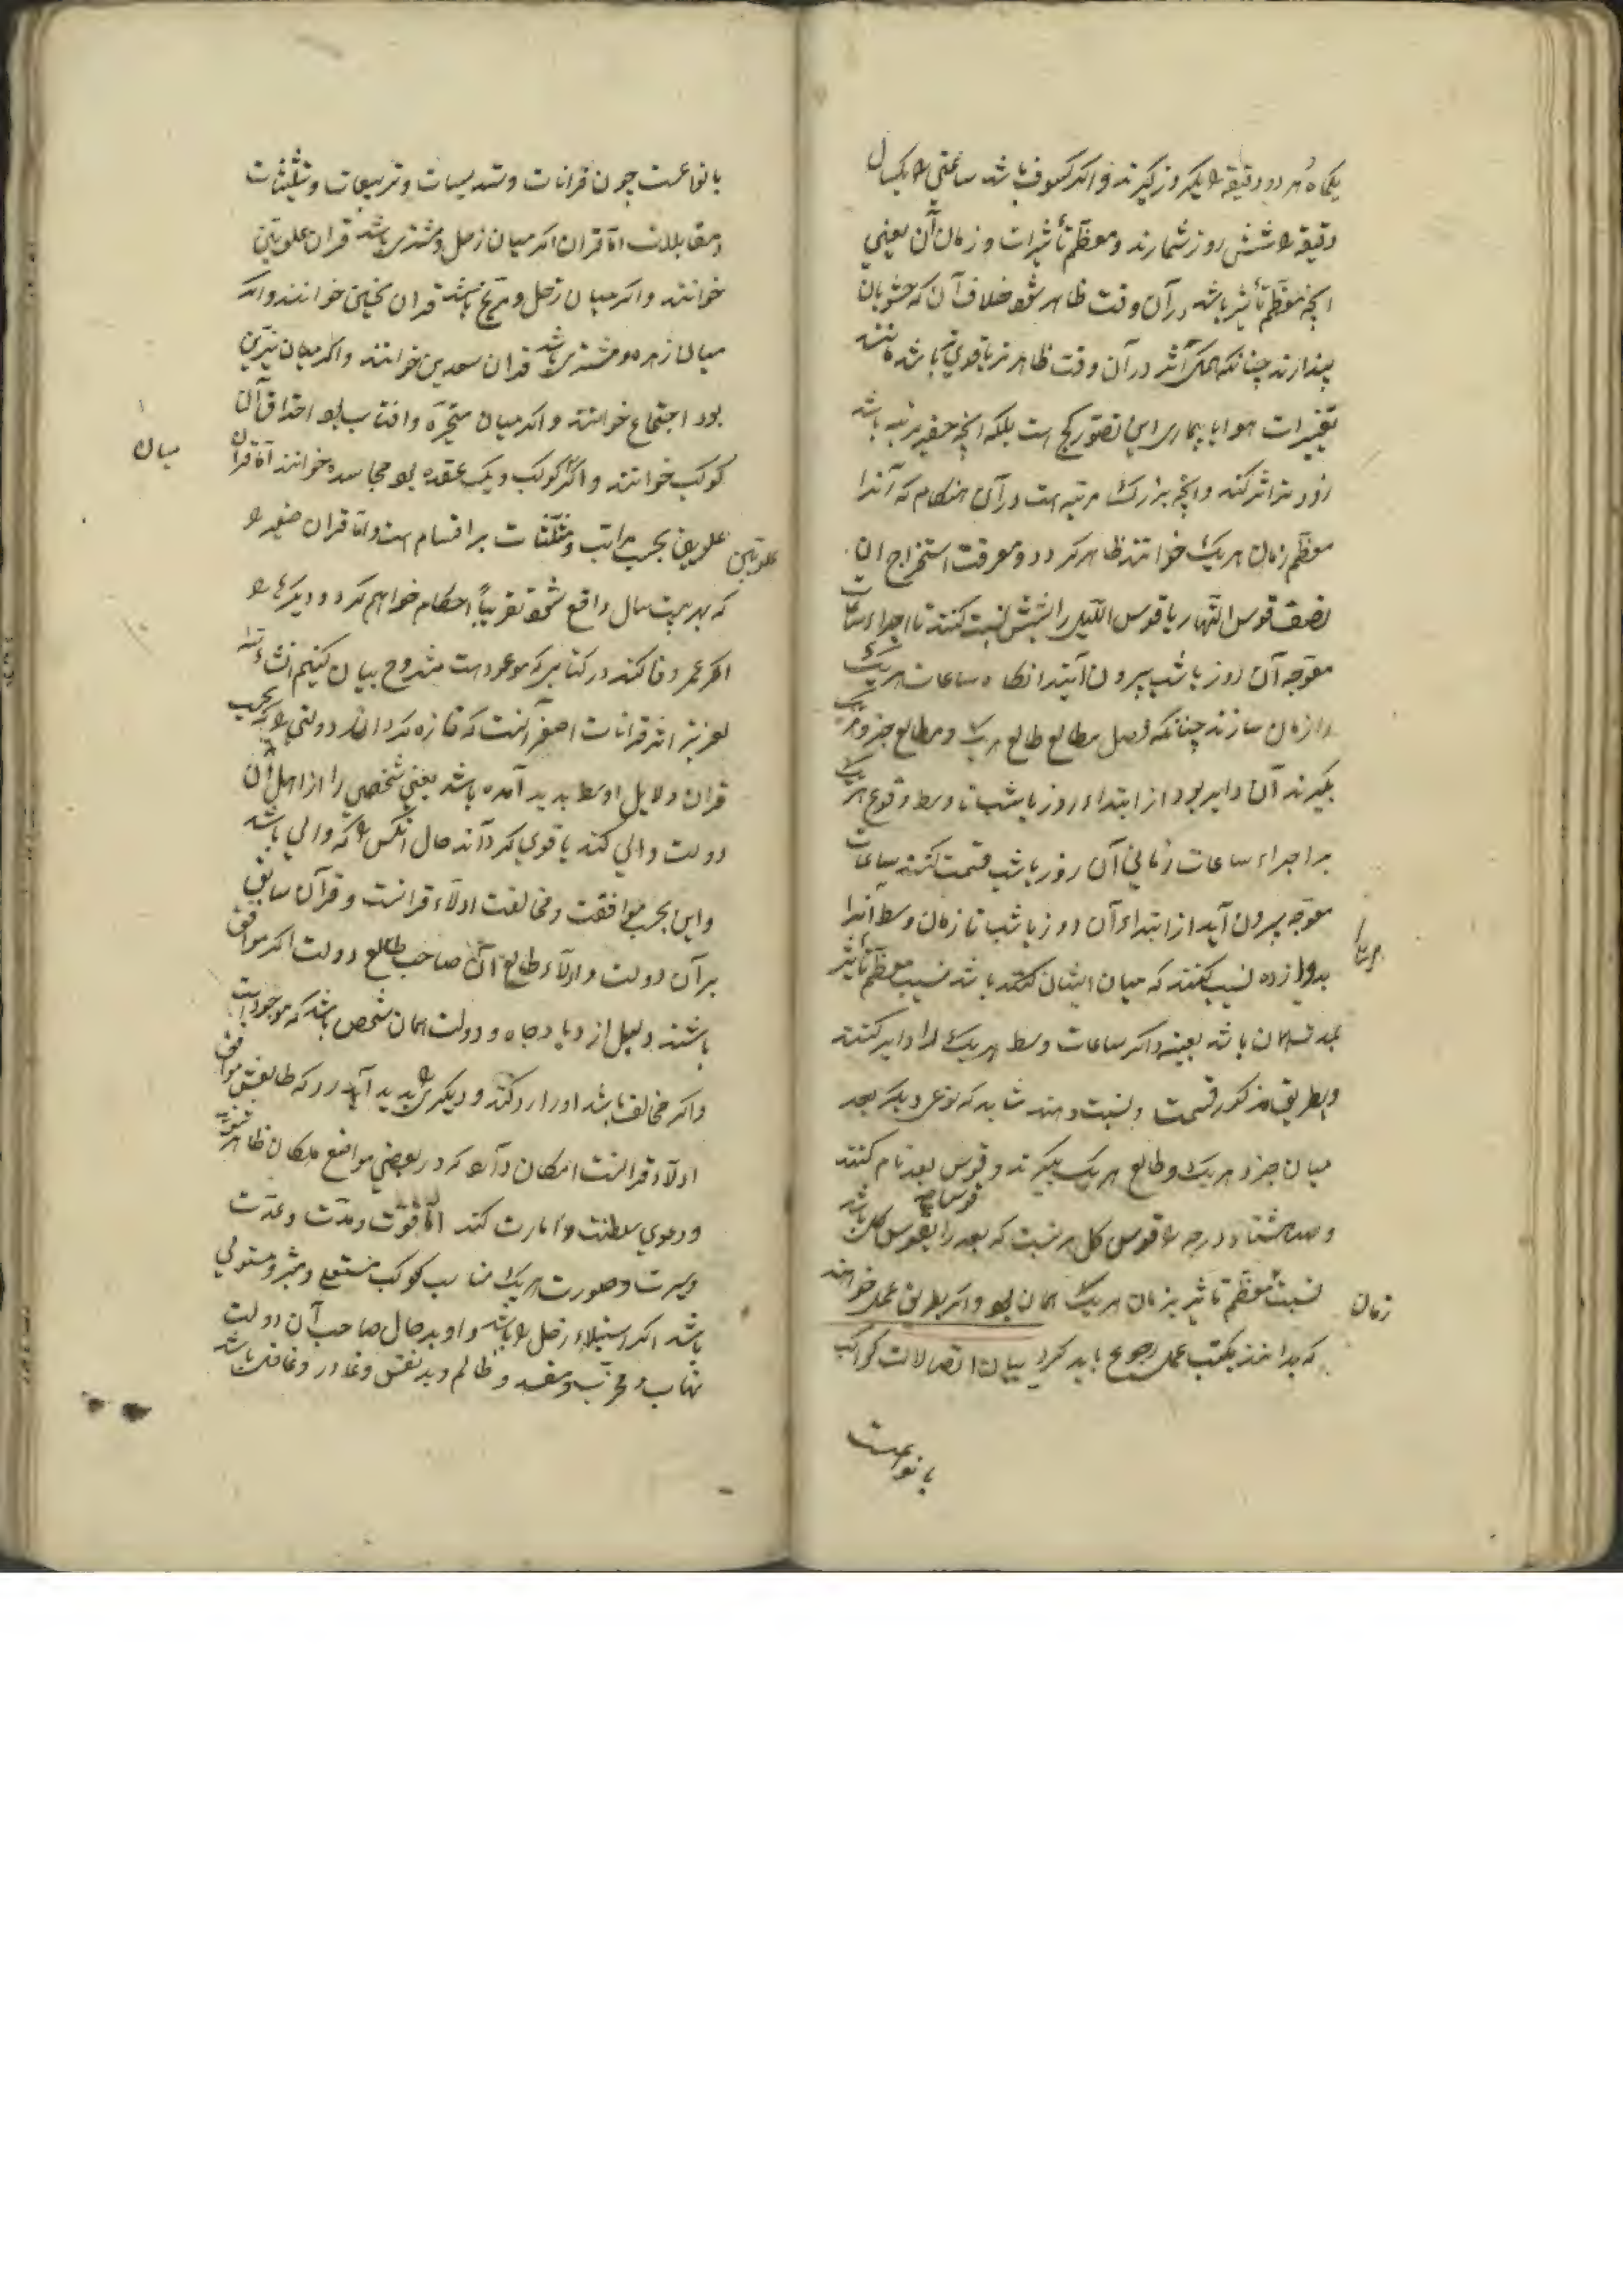 یکماه هر دو دقیقه را یکروز گیرند و اگر کسوف باشد ساعتی را یکسال
دقیقه را شش روز شمارند و معظم تأثیرات و زمان آن یعنی
انچه معظم تأثیر باشد در آن وقت ظاهر شود خلاف آن که حشویان
پندارند چنانکه همکی اثر در آن وقت ظاهر تر یا قوی تر باشد مانند
تغییرات هوا یا بیماری این تصور کج است بلکه انچه حقیر مرتبه باشد
زودتر اثر کند و انچه بزرک مرتبه است در آن هنکام که آنرا
معظم زمان هریک خوانند ظاهر کردد و معرفت استخراج ان
نصف قوس النهار یا قوس اللیل را بشش نسبت کنند تا اجزاء ساعات
معوجه آن روز یا شب بیرون آید انکاه ساعات هریک
را زمان سازند چنانکه فصل مطالع طالع هریک و مطالع جزو هریک
بکیرند آن دایر بود از ابتداء روز یا شب تا وسط وقوع هریک
بر اجزاء ساعات زمانی آن روز یا شب قسمت کنند ساعات
معوجه بیرون آید از ابتداء آن روز یا شب تا زمان وسط آنرا
بدوازده نسبت کنند که میان ایشان باشد نسبت معظم تأثیر
بمدت همان باشد بعینه و اکر ساعات وسط هریک را دایر کنند
و بطریق مذکور قسمت و نسبت دهند شاید که نوعی دیکر بعد
میان جزو هریک و طالع هریک بکیرند و قوس بعد نام کنند
و صد هشتاد درجه را قوس کل هر نسبت که بعد را بقوس کل باشد
نسبت معظم تاثیر بزمان هریک همان بود و اکر بطریق عمل خواهند
زمان
که بدانند بکتب عمل رجوع باید کرد بیان اتصالات کواکب
بانواعست
بانواعست چون قرانات و تسدیسات و تربیعات و تثلیثات
و مقابلات اما قران اکر میان زحل و مشتری باشد قران علویین
خوانند و اکر میان زحل و مریخ باشد قران نحسین خوانند و اکر
میان زهره و مشتری باشد قران سعدین خوانند و اکر میان نیرین
بود اجتماع خوانند و اکر میان متحیره و افتاب بود احتراق آن
کوکب خوانند و اکر کوکب و یک عقده بود مجاسده خوانند اما قران
میان
علویین علویین بحسب مراتب و مثلثات بر اقسام است و اما قران صغیر را
که بهر بیست سال واقع شود تقریباً احکام خواهم کرد و دیکر را
اکر عمر وفا کند در کتابی که موعود است مشروح بیان کنیم انشاء الله
لعزیز اثر قرانات اصغر آنست که تازه کرداند دولتی را که بحسب
قران دلایل اوسط پدید آمده باشد یعنی شخصی را از اهل آن
دولت والی کند یا قوی کرداند حال انکس را که والی باشد
و این بحسب موافقت و مخالفت ادلاء قرانست و قرآن سابق
بر آن دولت و ادلاء طالع آن صاحب طالع دولت اکر موافق
باشند دلیل ازدیاد جاه و دولت همان شخص باشد که موجود است
و اکر مخالف باشد او را رد کند و دیکری را پدید آورد که طالعش موافق
ادلاء قرانست امکان دارد که در بعضی مواضع ملکان ظاهر شوند
و دعوی سلطنت و امارت کند اما قوت و مدت و عدت
و سیرت و صورت هریک مناسب کوکب مستعلی و مبتز و مستولی
باشد اکر استیلاء زحل را باشد و او بدحال صاحب آن دولت
نهاب و مخرب و مفسد و ظالم و بدنفس و غادر و غافل باشد